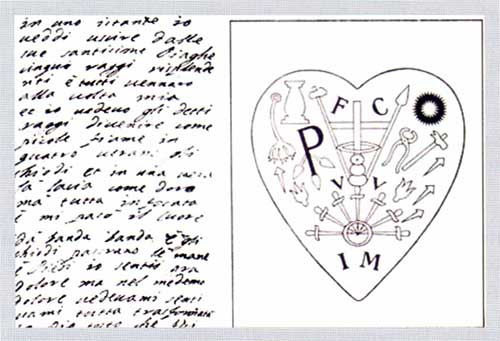 in uno istante io
veddi uscire dalle
sue santissime Piaghe
cinque raggi risplende
nti e tutti vennero
alla volta mia
et io vedevo gli detti
raggi divenire come
picole fiame in
quatro verano gli
chiodi et in una vera
la lancia come d oro
ma tutta infocata
e mi passò il cuore
da banda banda e gli
chiodi passarno le mane
e Piedi io sentii
dolore ma nel medemo
dolore vedevami senti
vami tutta trasformata
in Dio
F C
P
V V
I M